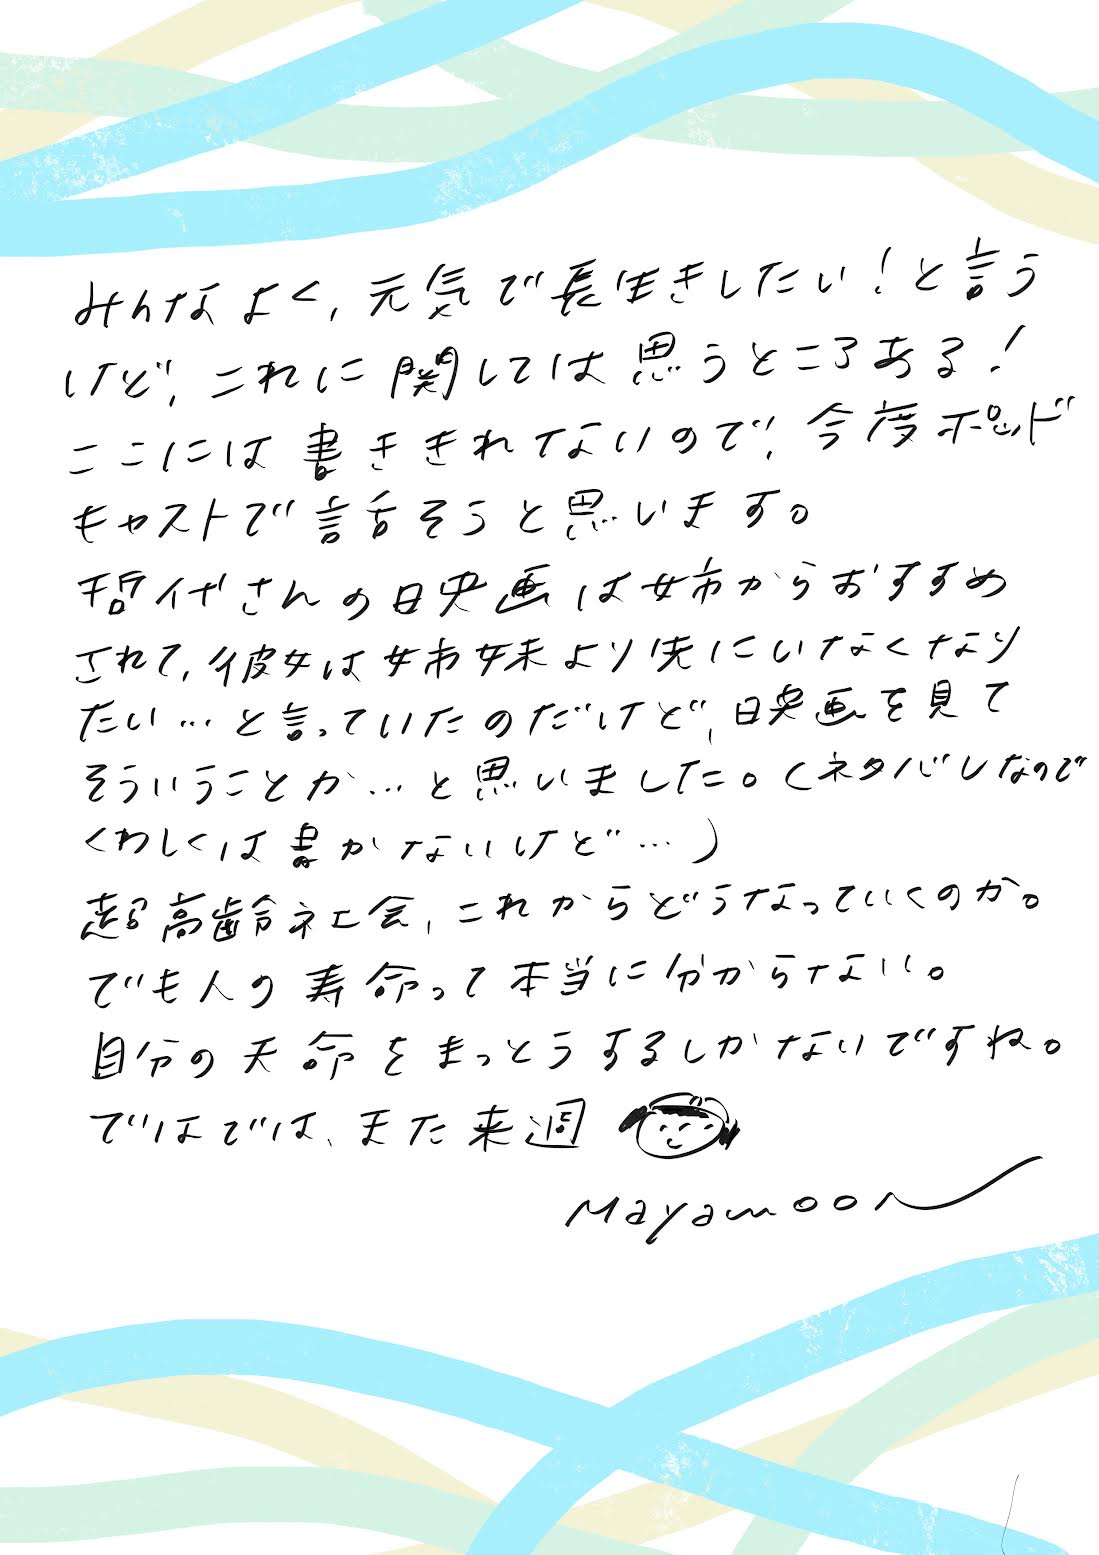 みんなよく、元気で長生きしたい!と言う
けど、これに関しては思うところある!
ここには書ききれてないので、今度ポッド
キャストで話そうと思います。
哲代さんの映画は姉からおすすめ
されて、彼女は姉妹より先にいなくなり
たい…と言っていたのだけど、映画を見て
そういうことか…と思いました。(ネタバレなので
くわしくは書かないけど…)
超高齢社会、これからどうなっていくのか。
でも人の寿命って本当に分からない。
自分の天命をまっとうするしかないですね。
ではでは、また来週
Mayamoon